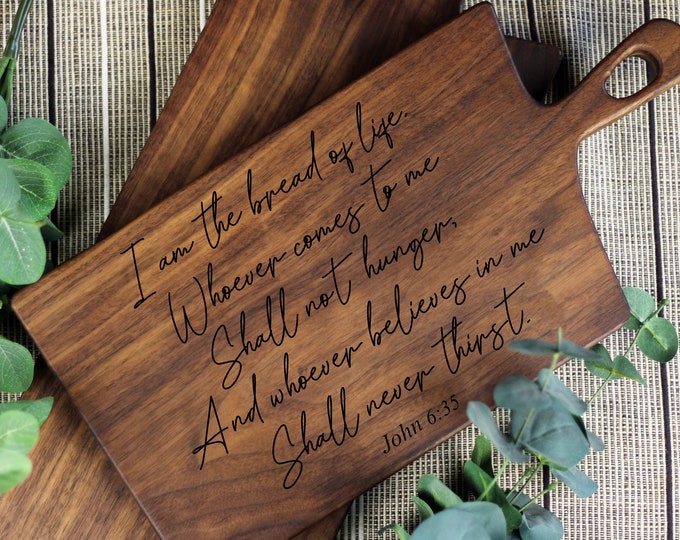 I am the bread of life.
Whoever comes to me
Shall not hunger,
And whoever believes in me
Shall never thirst.
John 6:35